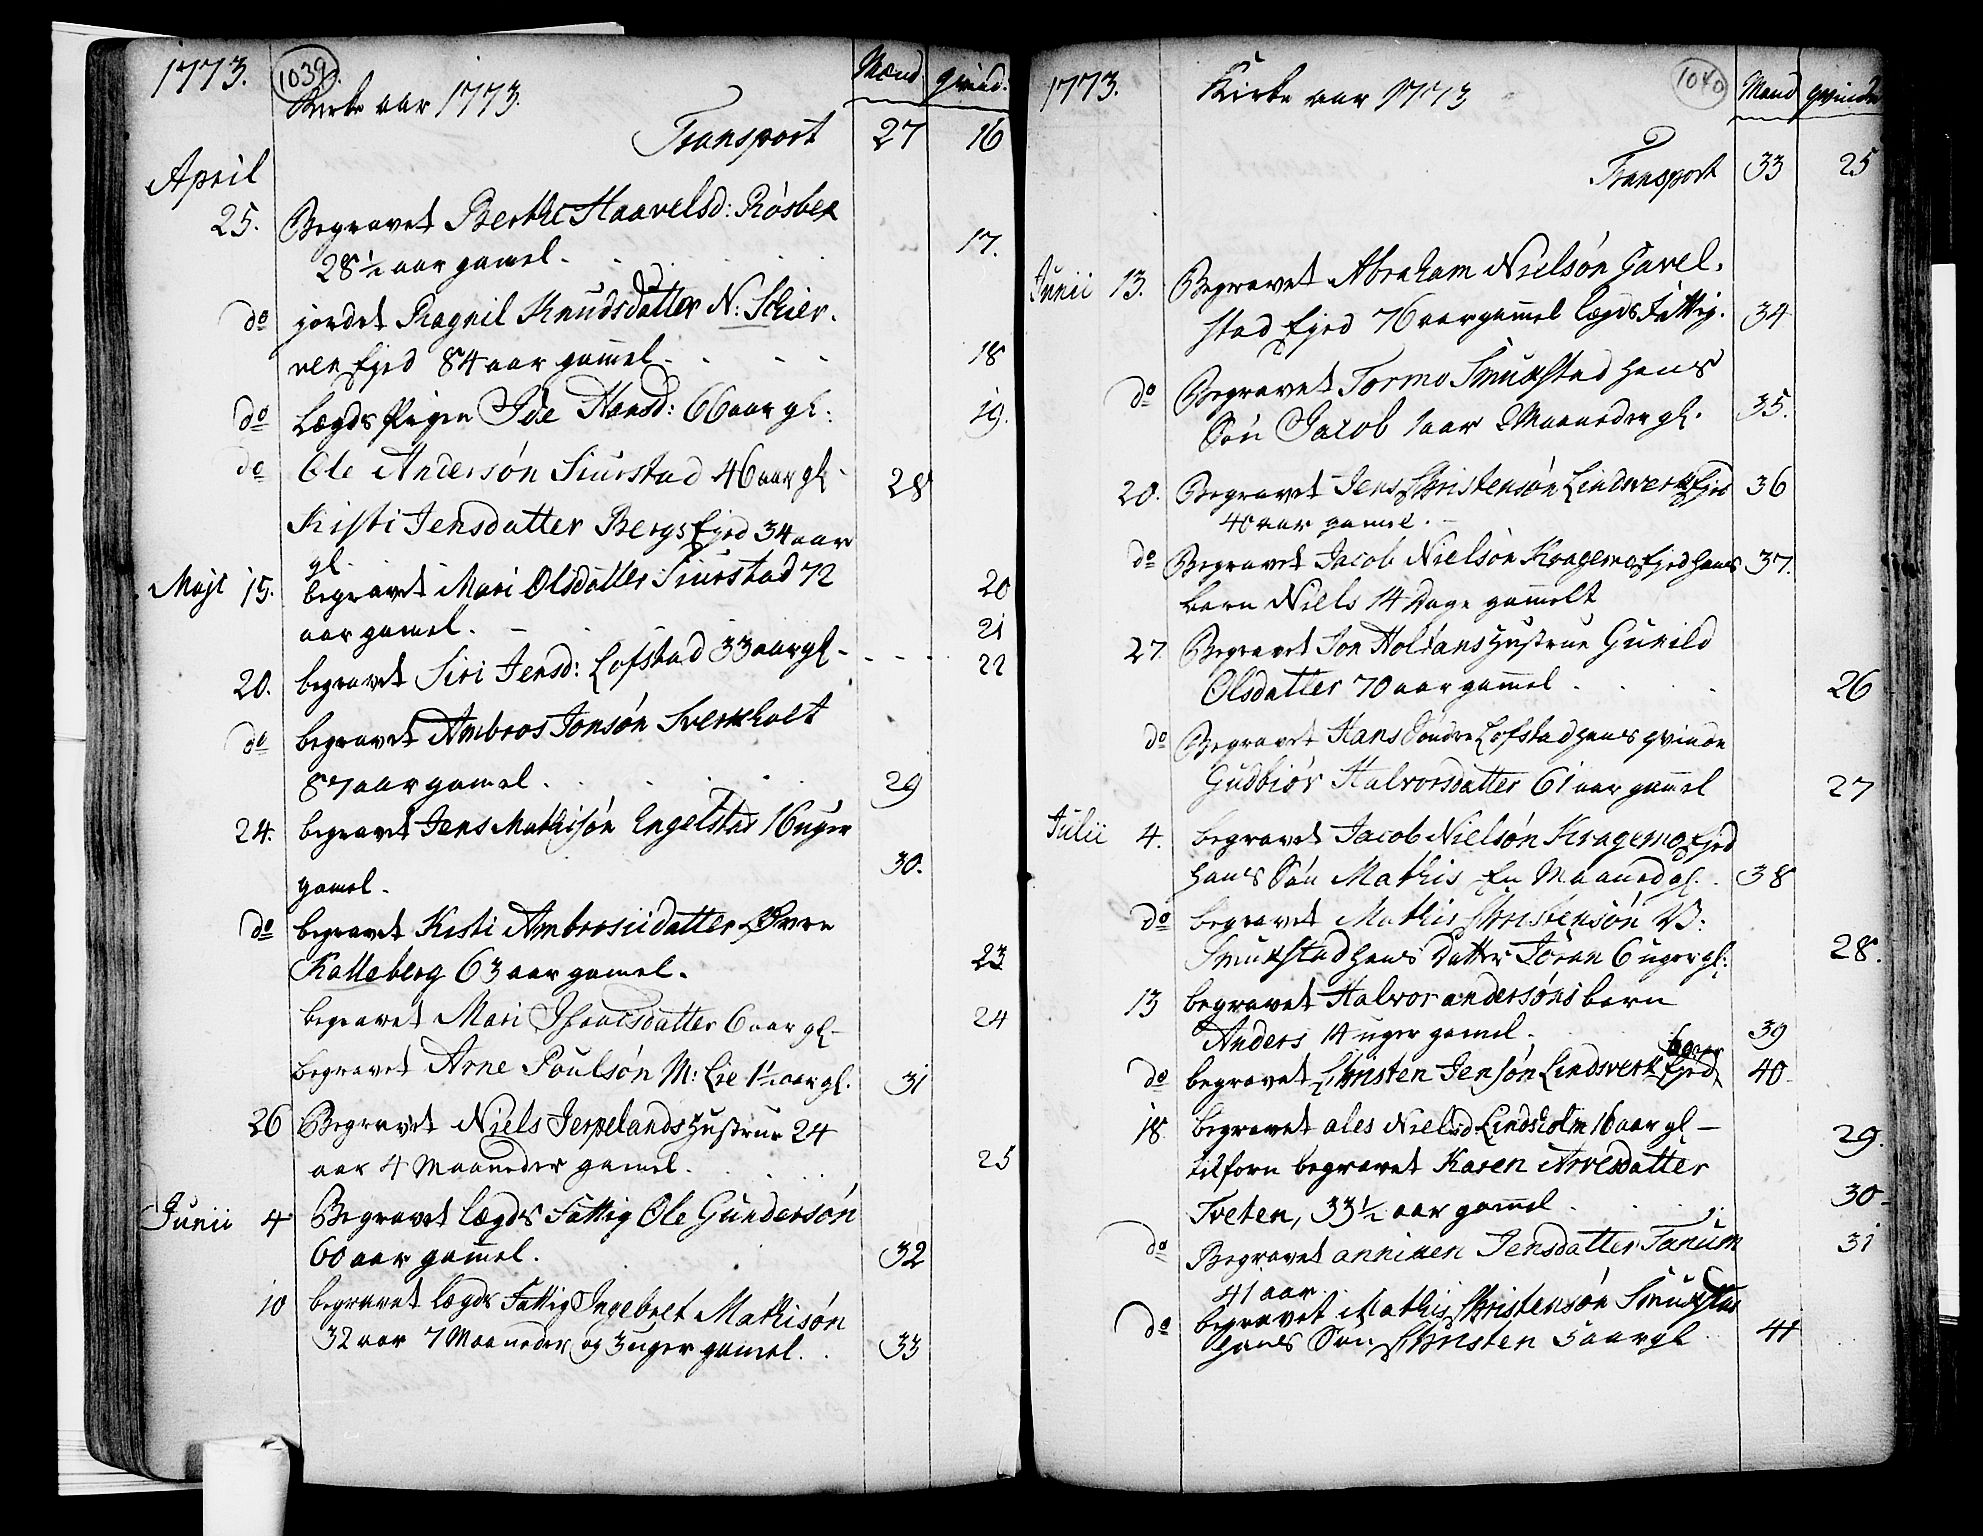 1773.
1039.
Kirke aar 1773.
Mænd. qvind:
Transport 27 16
April
25. Begravet Berthe Haavelsd: Røsbek
28 ½ aar gamel. 17.
do jordet Ragnil Knudsdatter N: Schier-
ven Ejed 84 aar gam̄el. 18
do Lægds Pigen Ide Hansd: 66 aar gl. 19.
do Ole Andersøn Siurstad 46 aar gl 28
Kisti Jensdatter Bergs Ejed 34 aar
gl. 20
Maji 15. begravet Mari Olsdatter Siurstad 72
aar gamel. 21
20. begravet Siri Jensd: Lofstad 33 aar gl 22
do begravet Ambros Jonsøn Sverkholt
87 aar gamel. 29
24. begravet Jens Mathisøn Engelstad 16 uger
gamel. 30.
do begravet Kisti Ambrosiidatter Øvre
Kalleberg 63 aar gamel. 23
begravet Mari Isaacsdatter 6 aar gl 24
begravet Arne Poulsøn M: Lie 1½ aar gl. 31
26 Begravet Niels Jerpelands Hustrue 24
aar 4 Maaneder gamel. 25
Junii 4 Begravet Lægds Fattig Ole Gundersøn
60 aar gam̄el. 32
10 begravet Lægds Fattig Ingebret Mathisøn
32 aar 7 Maaneder og 3 uger gamel. 33
1773.
Kirke aar 1773
1040
Mænd qvinde
Transport 33 25
Junii 13. Begravet Abraham Nielsøn Gavel-
stad Ejed 76 aar gam̄el Lægds Fattig. 34
do Begravet Tormo Smukstad hans
Søn Jacob 1 aar 2 Maaneder gl. 35.
20. Begravet Jens Christensøn Lindverk Ejed 36
40 aar gamel.
do Begravet Jacob Nielsøn Kragemo Ejed hans 37.
barn Niels 14 Dage gam̄elt
27. Begravet Jon Holtans Hustrue Gunild
Olsdatter 70 aar gam̄el 26
do Begravet Hans Søndre Lofstad hans qvinde
Gudbiør Halvorsdatter 61 aar gam̄el 27
Julii 4. begravet Jacob Nielsøn Kragemo Ejed
hans Søn Mathis En Maaned gl. 38
do begravet Mathis Christensøn V:
Smukstad hans Datter Jøran 6 uger gl: 28.
13 begravet Halvor andersøns barn
Anders 14 uger gamel. 39
do begravet Christen Jensøn Lindverk Ejed 40
18. begravet ales Nielsd Lindholm 16 aar gl 29.
tilforn begravet Karen Arvesdatter
Tveten, 33 ½ aar gam̄el 30
do Begravet anniken Jensdatter Tanum 31
41 aar.
do begravet Mathis Christensøn Smukstad
hans Søn Christen 5 aar gl 41